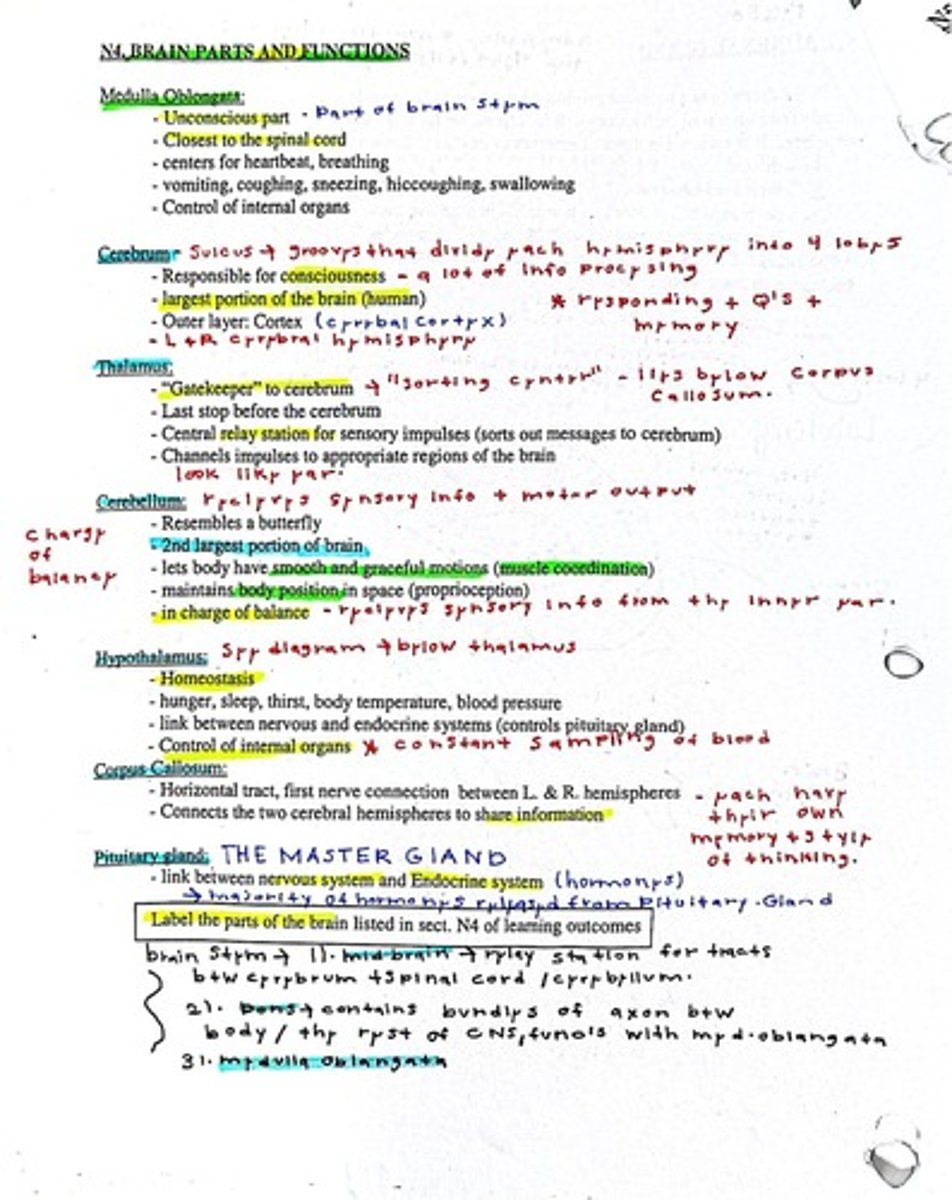 N4. BRAIN PARTS AND FUNCTIONS
Medulla Oblongata:
- Unconscious part - Part of brain stem
- Closest to the spinal cord
- centers for heartbeat, breathing
- vomiting, coughing, sneezing, hiccoughing, swallowing
- Control of internal organs
Cerebrum - Sulcus → grooves that divide each hemisphere into 4 lobes
- Responsible for consciousness - a lot of info procesing
- largest portion of the brain (human) * responding + Q's +
- Outer layer: Cortex (cerebal cortex) memory
- L + R cerebral hemisphere
Thalamus:
- "Gatekeeper" to cerebrum → "sorting centre" - lies below corpus
callosum.
- Last stop before the cerebrum
- Central relay station for sensory impulses (sorts out messages to cerebrum)
- Channels impulses to appropriate regions of the brain
look like ear.
Cerebellum: recieves sensory info + motor output
- Resembles a butterfly
- 2nd largest portion of brain
- lets body have smooth and graceful motions (muscle coordination)
- maintains body position in space (proprioception)
- in charge of balance - recieves sensory info from the inner ear.
charge
of
balance
Hypothalamus: See diagram → below thalamus
- Homeostasis
- hunger, sleep, thirst, body temperature, blood pressure
- link between nervous and endocrine systems (controls pituitary gland)
- Control of internal organs * constant sampling of blood
Corpus Callosum:
- Horizontal tract, first nerve connection between L. & R. hemispheres - each have
- Connects the two cerebral hemispheres to share information their own
memory + style
of thinking.
Pituitary gland: THE MASTER GLAND
- link between nervous system and Endocrine system (hormones)
→ majority of hormones released from Pituitary Gland
Label the parts of the brain listed in sect. N4 of learning outcomes
brain stem → 1). midbrain → relay station for tracts
btw cerebrum + spinal cord / cerebellum.
2). Pons → contains bundles of axon btw
body / the rest of CNS, with med. oblangata
3). medulla oblangata